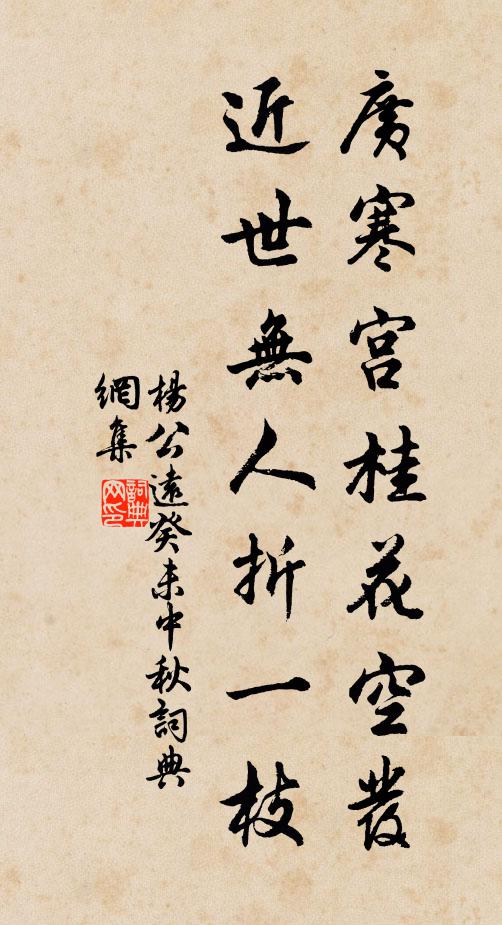 廣寒宮桂花空發
近世無人折一枝
楊公遠癸未中秋詞典
網集
詞典
网印